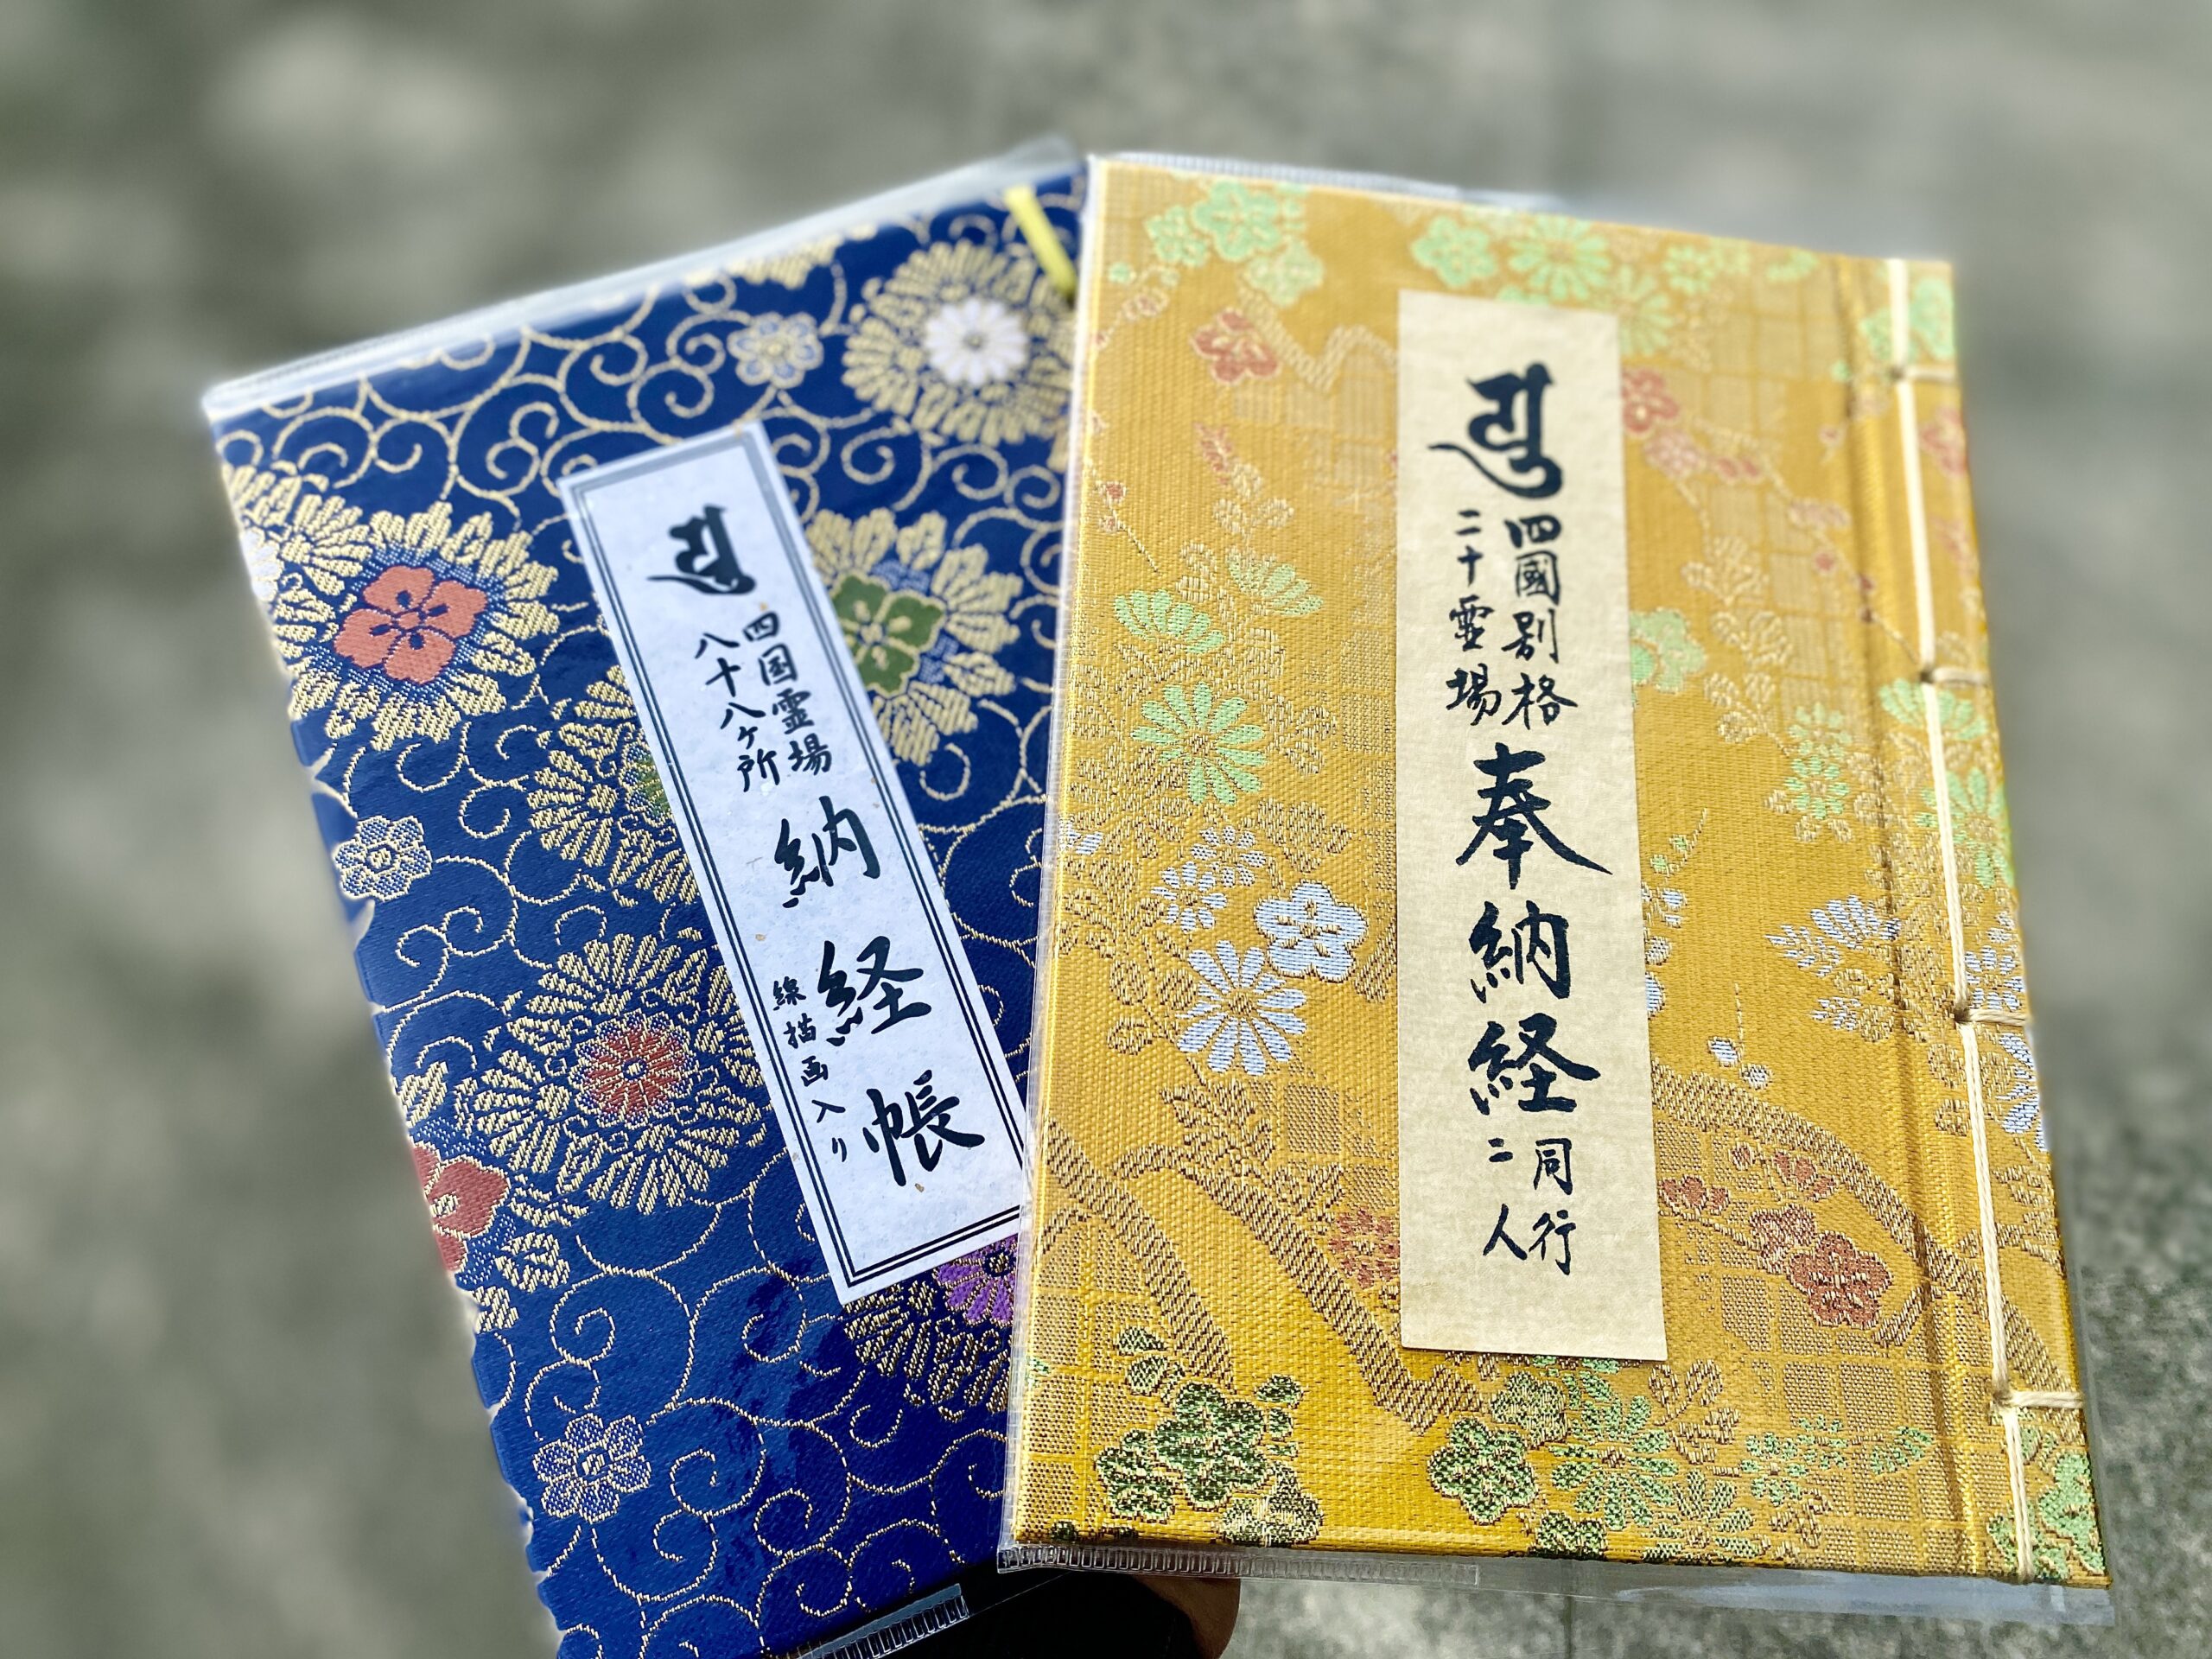 𑖧𑖲
四国霊場
八十八ヶ所
納経帳
線描画入り
𑖧𑖲
四國别格
二十霊場
奉納経
同行
二人